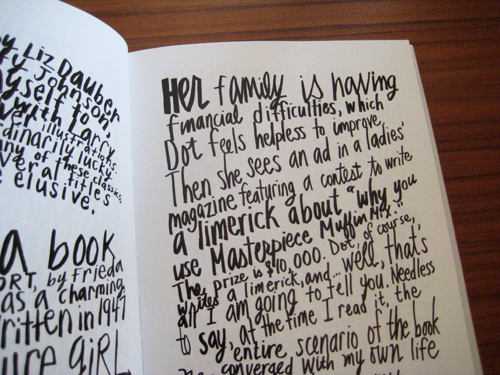 by Liz Dauber
ty Johnson,
myself to
with Larry
over illustrations.
dinarily lucky
any of these classics
veral titles
e elusive.
a book
ORT, by Frieda
as a charming
ritten in 1947
ure girl
Her family is having
financial difficulties, which
Dot feels helpless to improve.
Then she sees an ad in a ladies'
magazine featuring a contest to write
a limerick about "Why you
use Masterpiece Muffin Mix."
The prize is $10,000. Dot, of course,
writes a limerick, and.. well, that's
all I am going to tell you. Needless
to say, at the time I read it, the
entire scenario of the book
converged with my own life